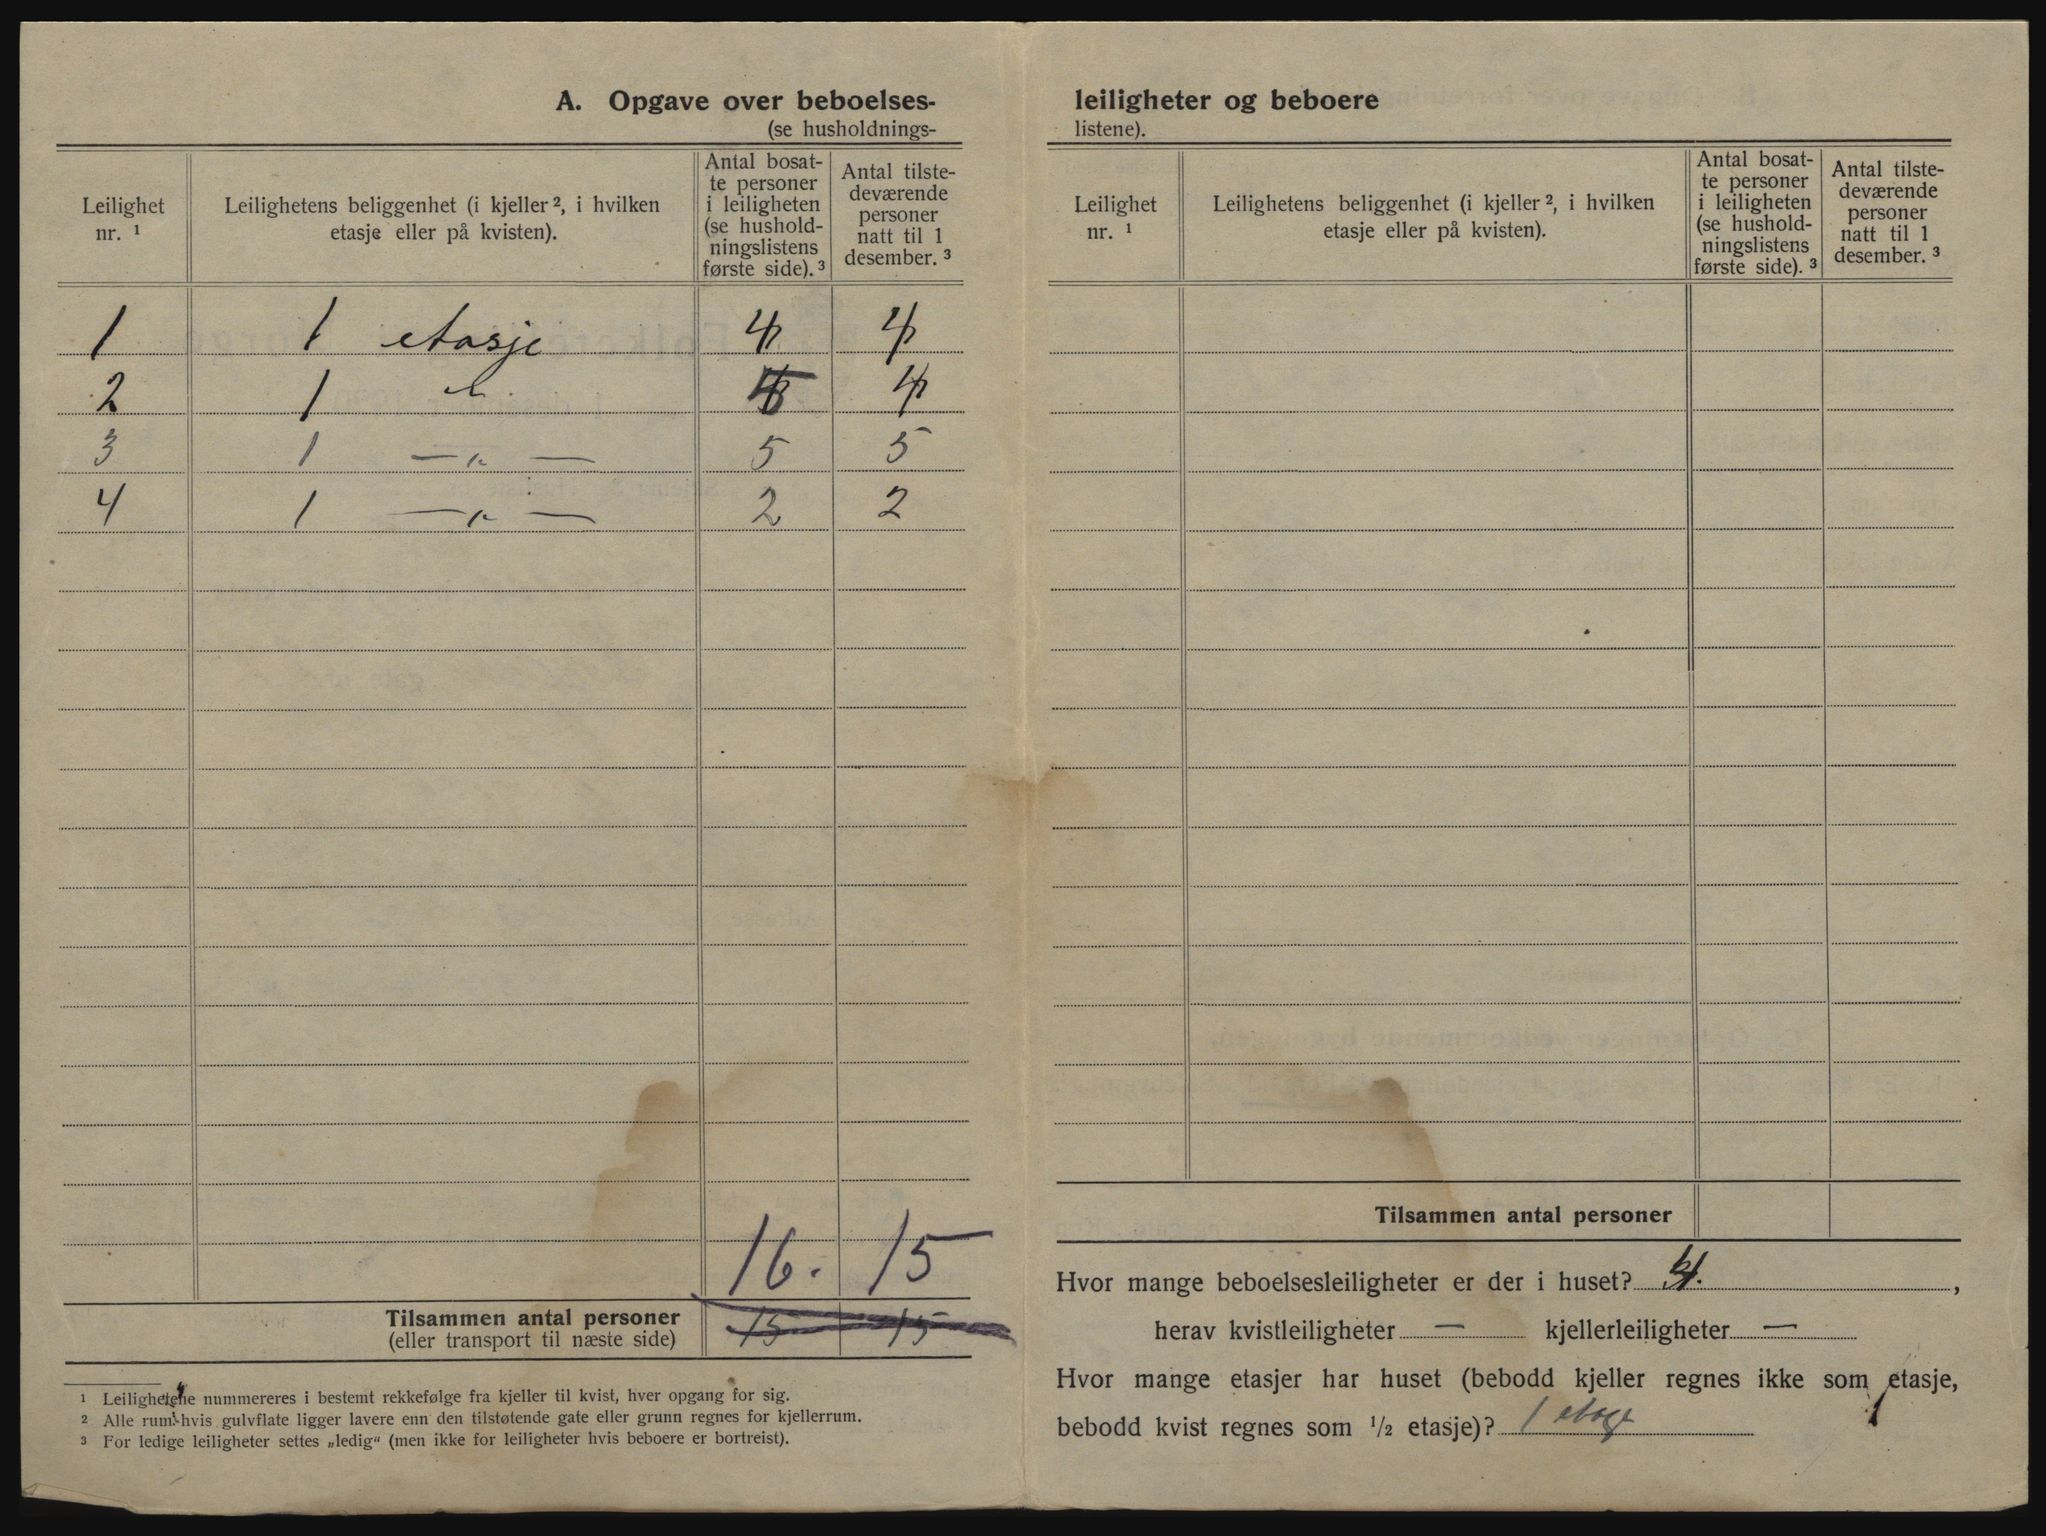 A. Opgave over beboelses-
(se husholdnings-
Leilighet nr. ¹
Leilighetens beliggenhet (i kjeller ², i hvilken etasje eller på kvisten).
Antal bosat-
te personer
i leiligheten
(se hushold-
ningslistens
første side). ³
Antal tilste-
deværende
personer
natt til 1
desember. ³
1 1 etasje 4 4
2 1 " 5 4
3 1 —"— 5 5
4 1 —"— 2 2
16. 15
Tilsammen antal personer 15 15
(eller transport til næste side)
¹ Leilighetene nummereres i bestemt rekkefølge fra kjeller til kvist, hver opgang for sig.
² Alle rum hvis gulvflate ligger lavere enn den tilstøtende gate eller grunn regnes for kjellerrum.
³ For ledige leiligheter settes „ledig“ (men ikke for leiligheter hvis beboere er bortreist).
leiligheter og beboere
listene).
Leilighet nr. ¹
Leilighetens beliggenhet (i kjeller ², i hvilken etasje eller på kvisten).
Antal bosat-
te personer
i leiligheten
(se hushold-
ningslistens
første side). ³
Antal tilste-
deværende
personer
natt til 1
desember. ³
Tilsammen antal personer
Hvor mange beboelsesleiligheter er der i huset? 4.,
herav kvistleiligheter — kjellerleiligheter —
Hvor mange etasjer har huset (bebodd kjeller regnes ikke som etasje,
bebodd kvist regnes som ½ etasje)? 1 etage 1